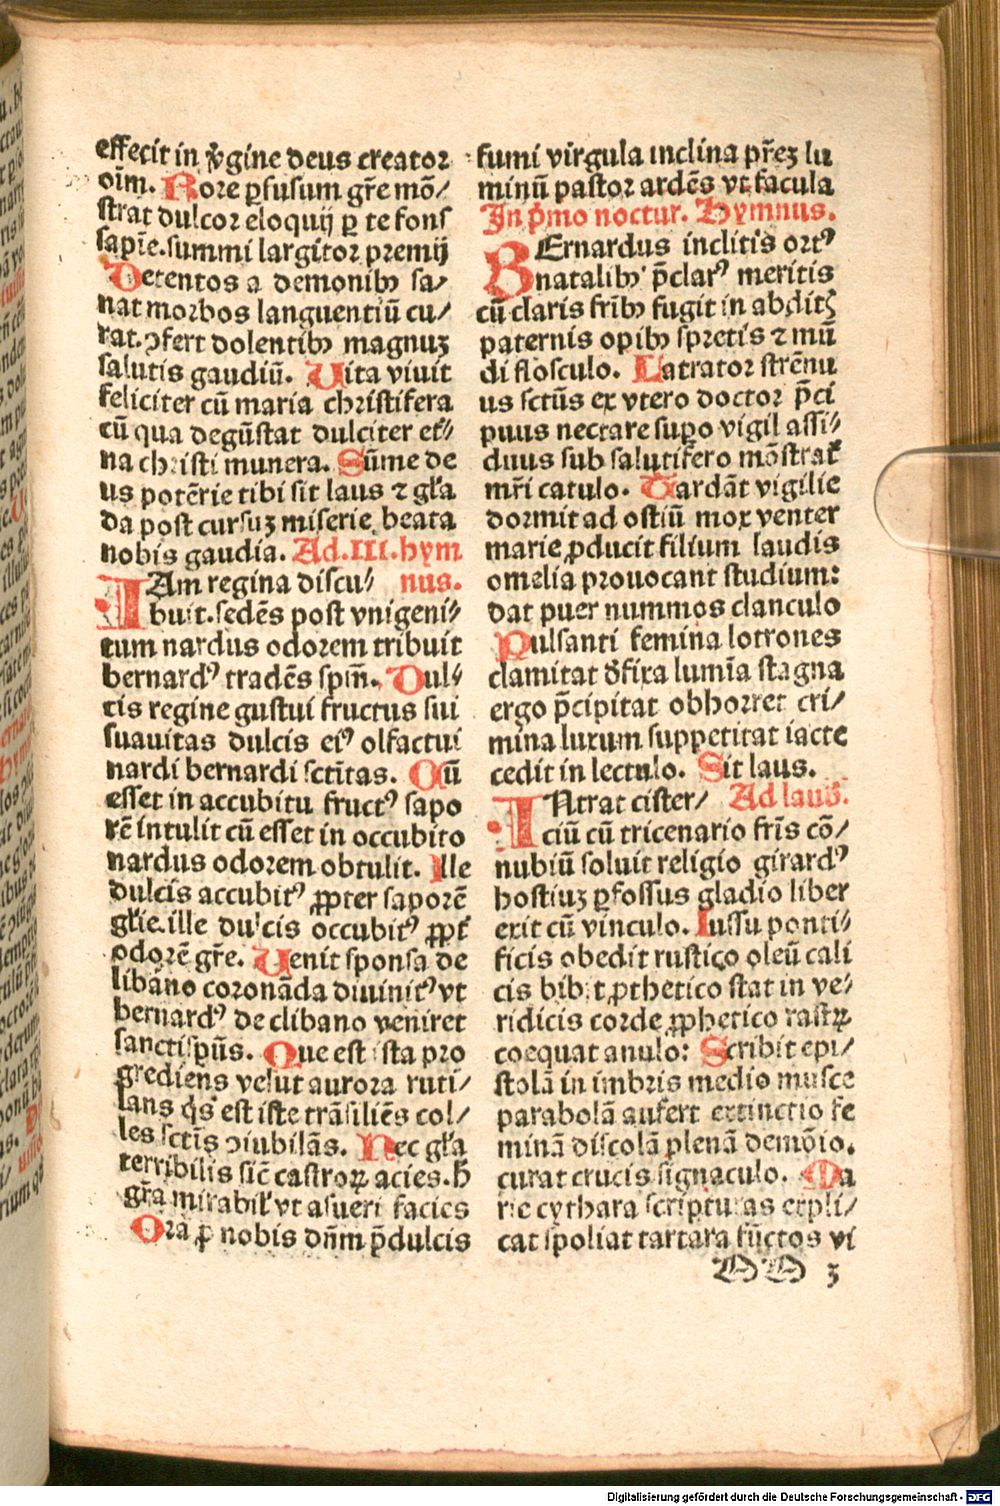 effecit in v̄gine deus creator
oīm. Rore ꝑfusum gr̄e mō/
strat dulcor eloquij ꝑ te fons
sapīe. summi largitor premij
Detentos a demonibꝫ sa/
nat morbos languentiū cu/
rat. ↄfert dolentibꝫ magnuꝫ
salutis gaudiū. Uita viuit
feliciter cū maria christifera
cū qua degūstat dulciter et̄/
na christi munera. Sūme de
us potērie tibi sit laus ⁊ gl̄a
da post cursuꝫ miserie beata
nobis gaudia. Ad .III. hym
IAm regina discu/ nus.
buit. sedēs post vnigeni/
tum nardus odorem tribuit
bernardꝰ tradēs spm̄. Dul/
cis regine gustui fructus sui
suauitas dulcis eiꝰ olfactui
nardi bernardi sctītas. Cū
esset in accubitu fructꝰ sapo
rē intulit cū esset in occubito
nardus odorem obtulit. Ille
dulcis accubitꝰ ꝓpter saporē
gl̄ie. ille dulcis occubitꝰ ꝓpt̄
odorē gr̄e. Uenit sponsa de
libano coronāda diuinitꝰ vt
bernardꝰ de clibano veniret
sanctispūs. Que est ista pro
grediens velut aurora ruti/
lans q̄s est iste trāsiliēs col/
les sctīs ↄiubilās. Nec gl̄a
terribilis sic̄ castroꝝ acies. h̄
gr̄a mirabil̄ vt asueri facies
Ora ꝓ nobis dn̄m p̄dulcis
fumi virgula inclina p̄reꝫ lu
minū pastor ardēs vt facula
In p̄mo noctur. Hymnus.
BErnardus inclitis ortꝰ
natalibꝫ p̄clarꝰ meritis
cū claris fr̄ibꝫ fugit in abditꝭ
paternis opibꝫ spretis ⁊ mū
di flosculo. Latrator strēnu
us sctūs ex vtero doctor p̄ci
puus nectare supo vigil assi/
duus sub salutifero mōstrat̄
mr̄i catulo. Tardāt vigilie
dormit ad ostiū mox venter
marie ꝓducit filium laudis
omelia prouocant studium:
dat puer nummos clanculo
Pulsanti femina lotrones
clamitat d̄fixa lumīa stagna
ergo p̄cipitat obhorret cri/
mina luxum suppetitat iacte
cedit in lectulo. Sit laus.
INtrat cister/ Ad laud̄.
ciū cū tricenario fr̄is cō/
nubiū soluit religio girardꝰ
hostiuꝫ ꝑfossus gladio liber
exit cū vīnculo. Iussu ponti/
ficis obedit rustico oleū cali
cis bibit ꝓthetico stat in ve/
ridicis corde ꝓphetico rastꝝ
coequat anulo: Scribit epi/
stolā in imbris medio musce
parabolā aufert extinctio fe
minā discolā plenā demōio.
curat crucis signaculo. Ma
rie cythara scripturas expli/
cat spoliat tartara fūctos vi
OO 3
Digitalisierung gefördert durch die Deutsche Forschungsgemeinschaft - DFG